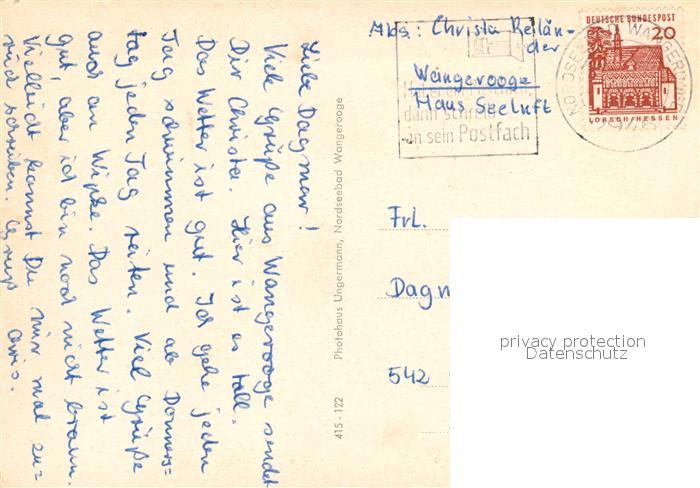 Liebe Dagmar!
Viele Grüße aus Wangerooge sendet
Dir Christa. Hier ist es toll.
Das Wetter ist gut. Ich gehe jeden
Tag schwimmen und ab Donners=
tag jeden Tag reiten. Viel Grüße
auch an Wipke. Das Wetter ist
gut, aber ich bin noch nicht braun.
Vielleicht kannst Du mir mal zu=
rück schreiben. Gruß
Chris.
415 - 122 Photohaus Ungermann, Nordseebad Wangerooge
Abs.: Christa
der
Wangerooge
Haus Seeluft
dann schreib
an sein Postfach
DEUTSCHE BUNDESPOST
20
LORSCH/HESSEN
Frl.
Dagm
542
privacy protection
Datenschutz